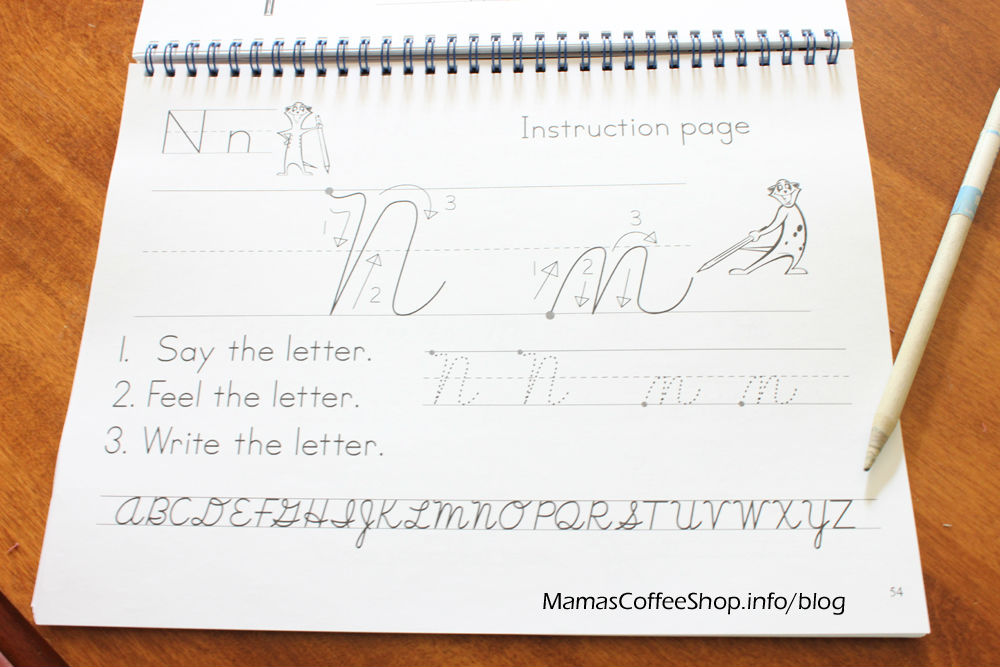 N n
Instruction page
1 2 3 N
1 2 3 n
1. Say the letter.
2. Feel the letter.
3. Write the letter.
N N n n
ABCDEFGHIJKLMNOPQRSTUVWXYZ
54
MamasCoffeeShop.info/blog